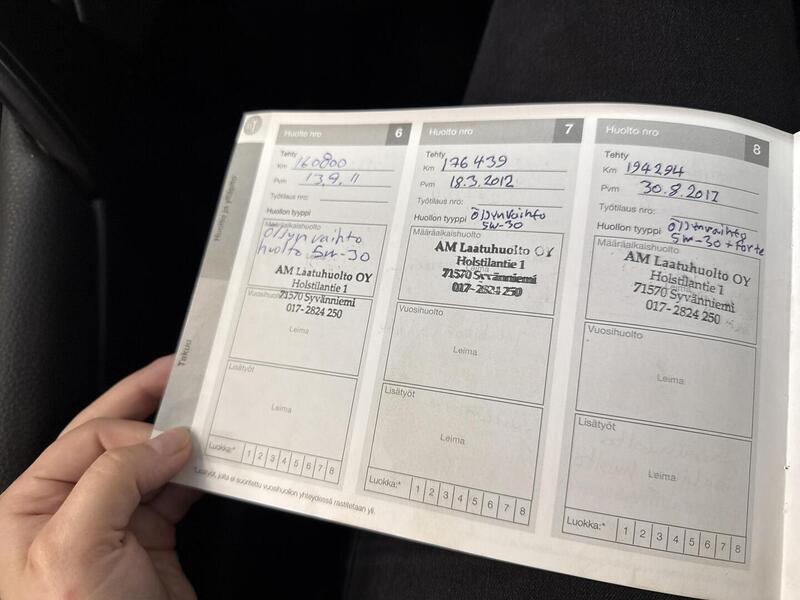 Huolto ja ylläpito
Takuu
Huolto nro 6
Tehty
Km 160800
Pvm 13.9.11
Työtilaus nro:
Huollon tyyppi
Määräaikaishuolto
Öljynvaihto
huolto 5W-30
AM Laatuhuolto OY
Holstilantie 1
71570 Syvänniemi
017-2824 250
Vuosihuolto
Leima
Lisätyöt
Leima
Luokka:* 1 2 3 4 5 6 7 8
Huolto nro 7
Tehty
Km 176439
Pvm 18.3.2012
Työtilaus nro:
Huollon tyyppi Öljynvaihto
5W-30
Määräaikaishuolto
AM Laatuhuolto OY
Holstilantie 1
Leima
71570 Syvänniemi
017-2824 250
Vuosihuolto
Leima
Lisätyöt
Leima
Luokka:* 1 2 3 4 5 6 7 8
Huolto nro 8
Tehty
Km 194294
Pvm 30.8.2012
Työtilaus nro:
Huollon tyyppi Öljynvaihto
5W-30 + Forte
Määräaikaishuolto
AM Laatuhuolto OY
Holstilantie 1
Leima
71570 Syvänniemi
017-2824 250
Vuosihuolto
Leima
Lisätyöt
Leima
Luokka:* 1 2 3 4 5 6 7 8
*Lisätyöt, joita ei suoriteta vuosihuollon yhteydessä rastitetaan yli.